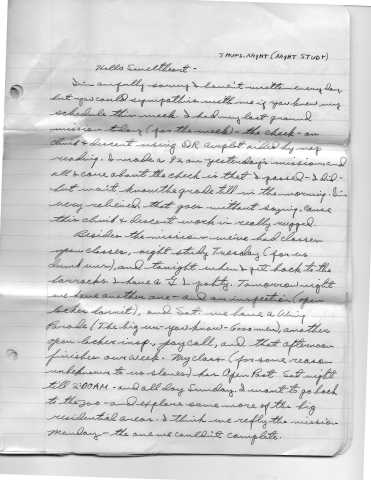 THURS. NIGHT (NIGHT STUDY)
Hello Sweetheart -
I'm awfully sorry I haven't written every day
but you could sympathize with me if you knew my
schedule this week. I had my last ground
mission today (for the week) - the check - on
climb & descent using D.R. aided by map
reading. I made a 92 on yesterday's mission, and
all I care about the check is that I passed - I did -
but won't know the grade till in the morning. I'm
very relieved, that goes without saying, cause
this climb & descent work is really rugged.
Besides the missions we've had classes
upon classes, night study Tuesday (for us
dumb uns), and tonight when I get back to the
barracks I have a G.I. party. Tomorrow night
we have another one - and an inspection (open
locker), and Sat. we have a Wing
Parade (The big un - you know - 6000 men), another
open locker insp., pay call, and that afternoon
finishes our week. My class (for some reason
unknown to us slaves) has Open Post Sat. night
till 2:00 AM - and all day Sunday. I want to go back
to the zoo - and explore some more of the big
residential areas. I think we refly the mission
Monday - the one we couldn't complete.